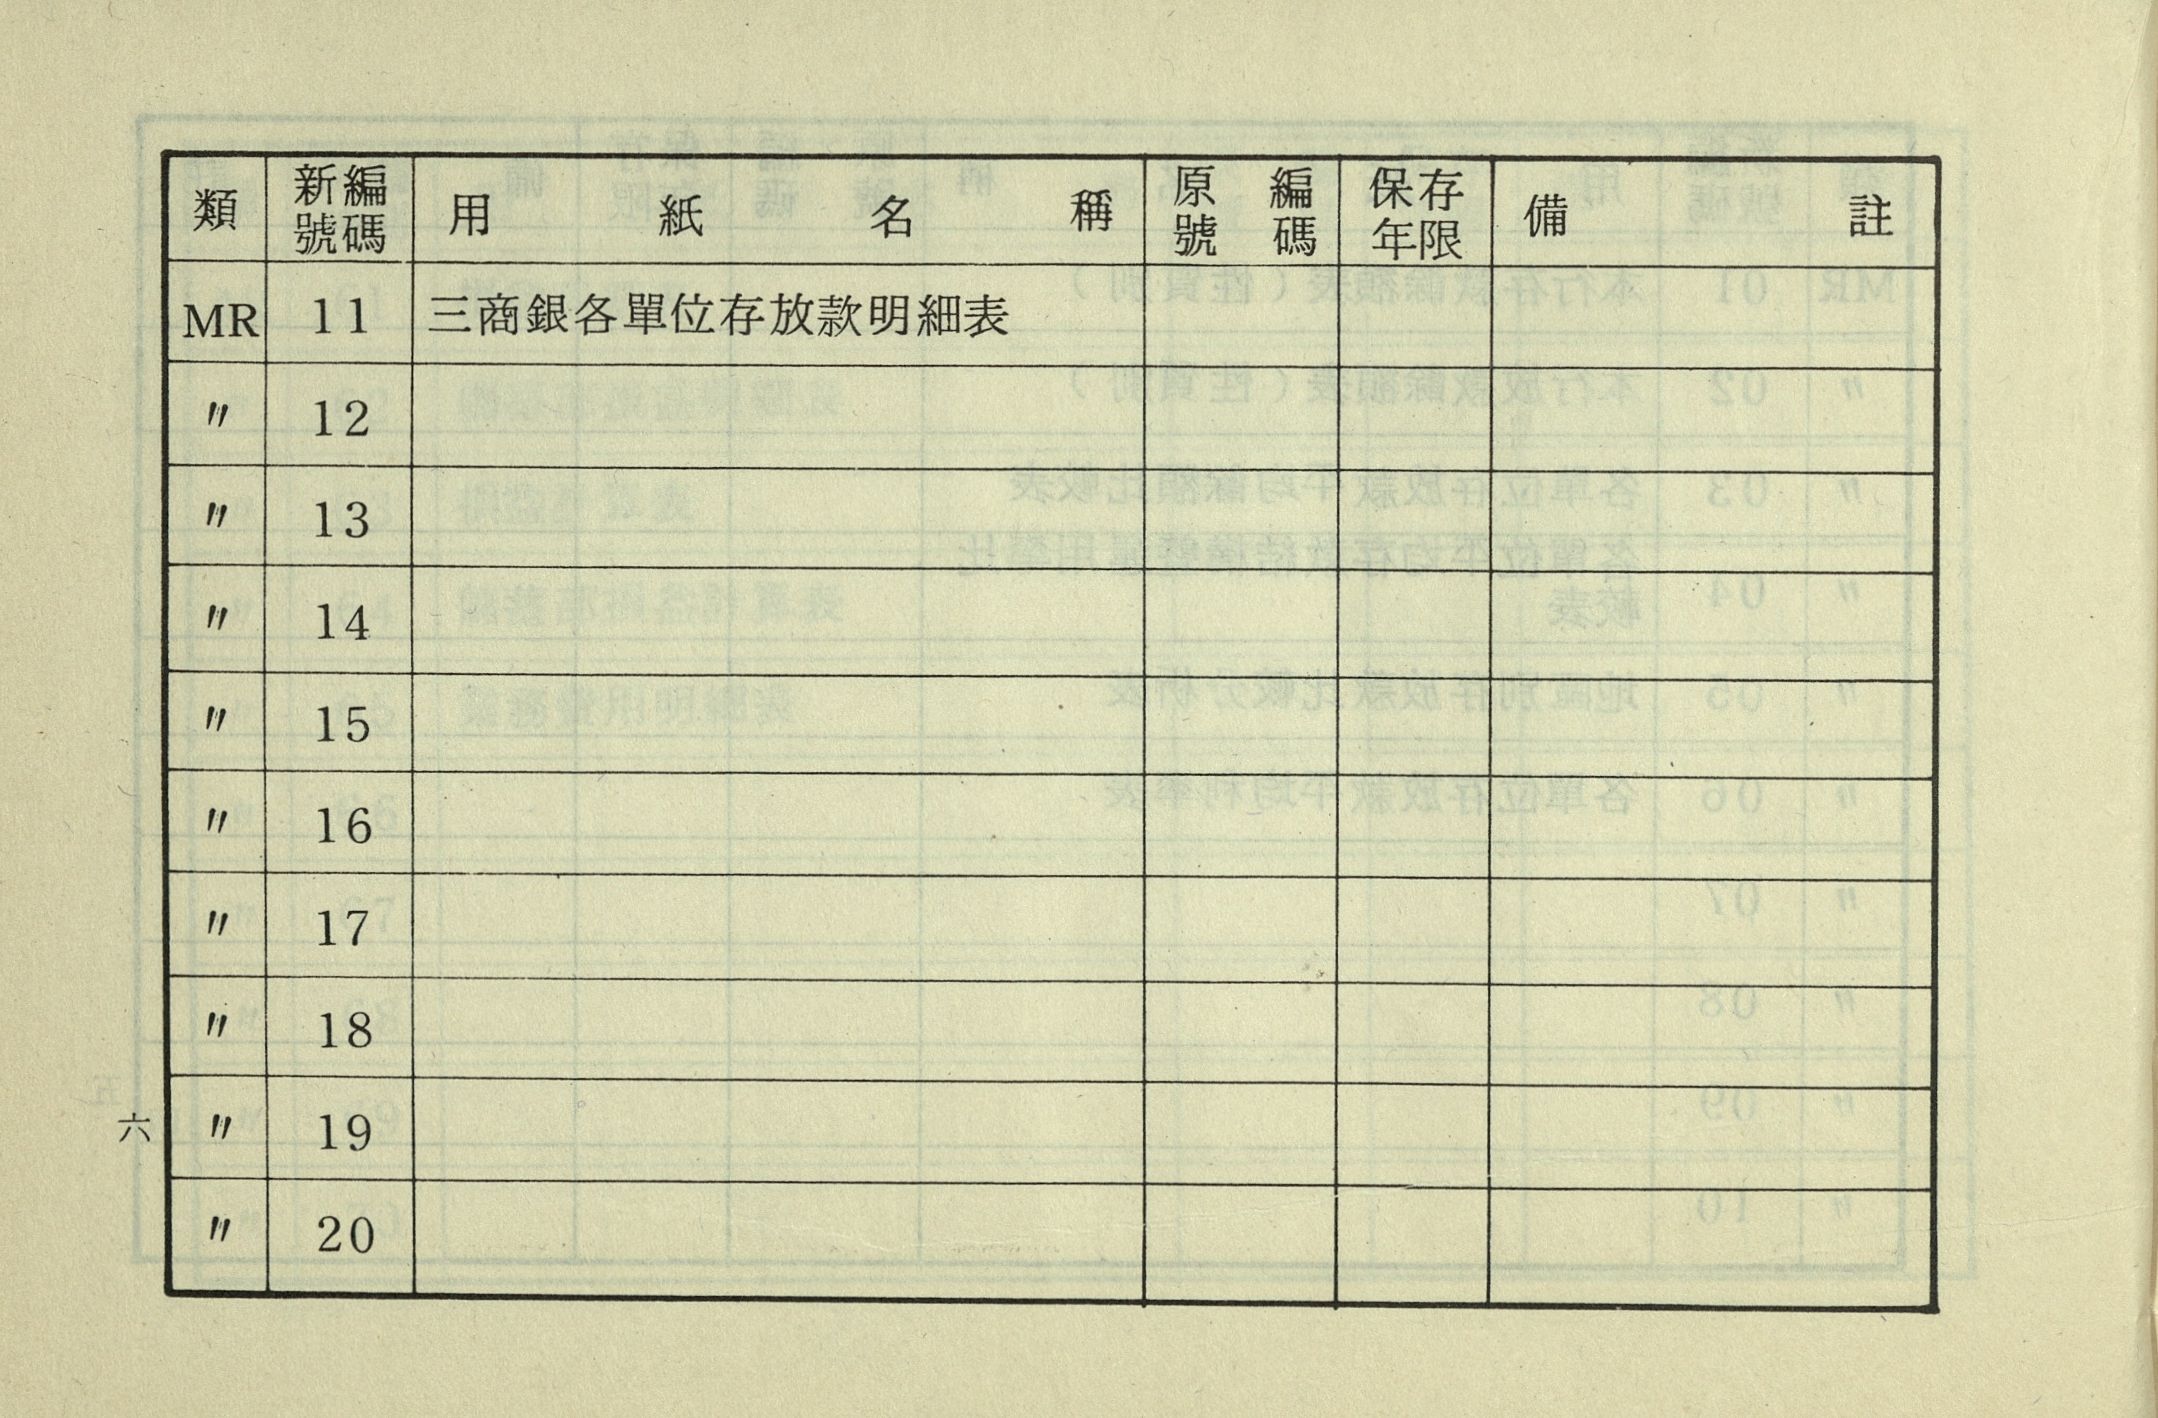 類 新編號碼 用紙名稱 原編號碼 保存年限 備註
MR 11 三商銀各單位存放款明細表
〃 12
〃 13
〃 14
〃 15
〃 16
〃 17
〃 18
〃 19
〃 20
六